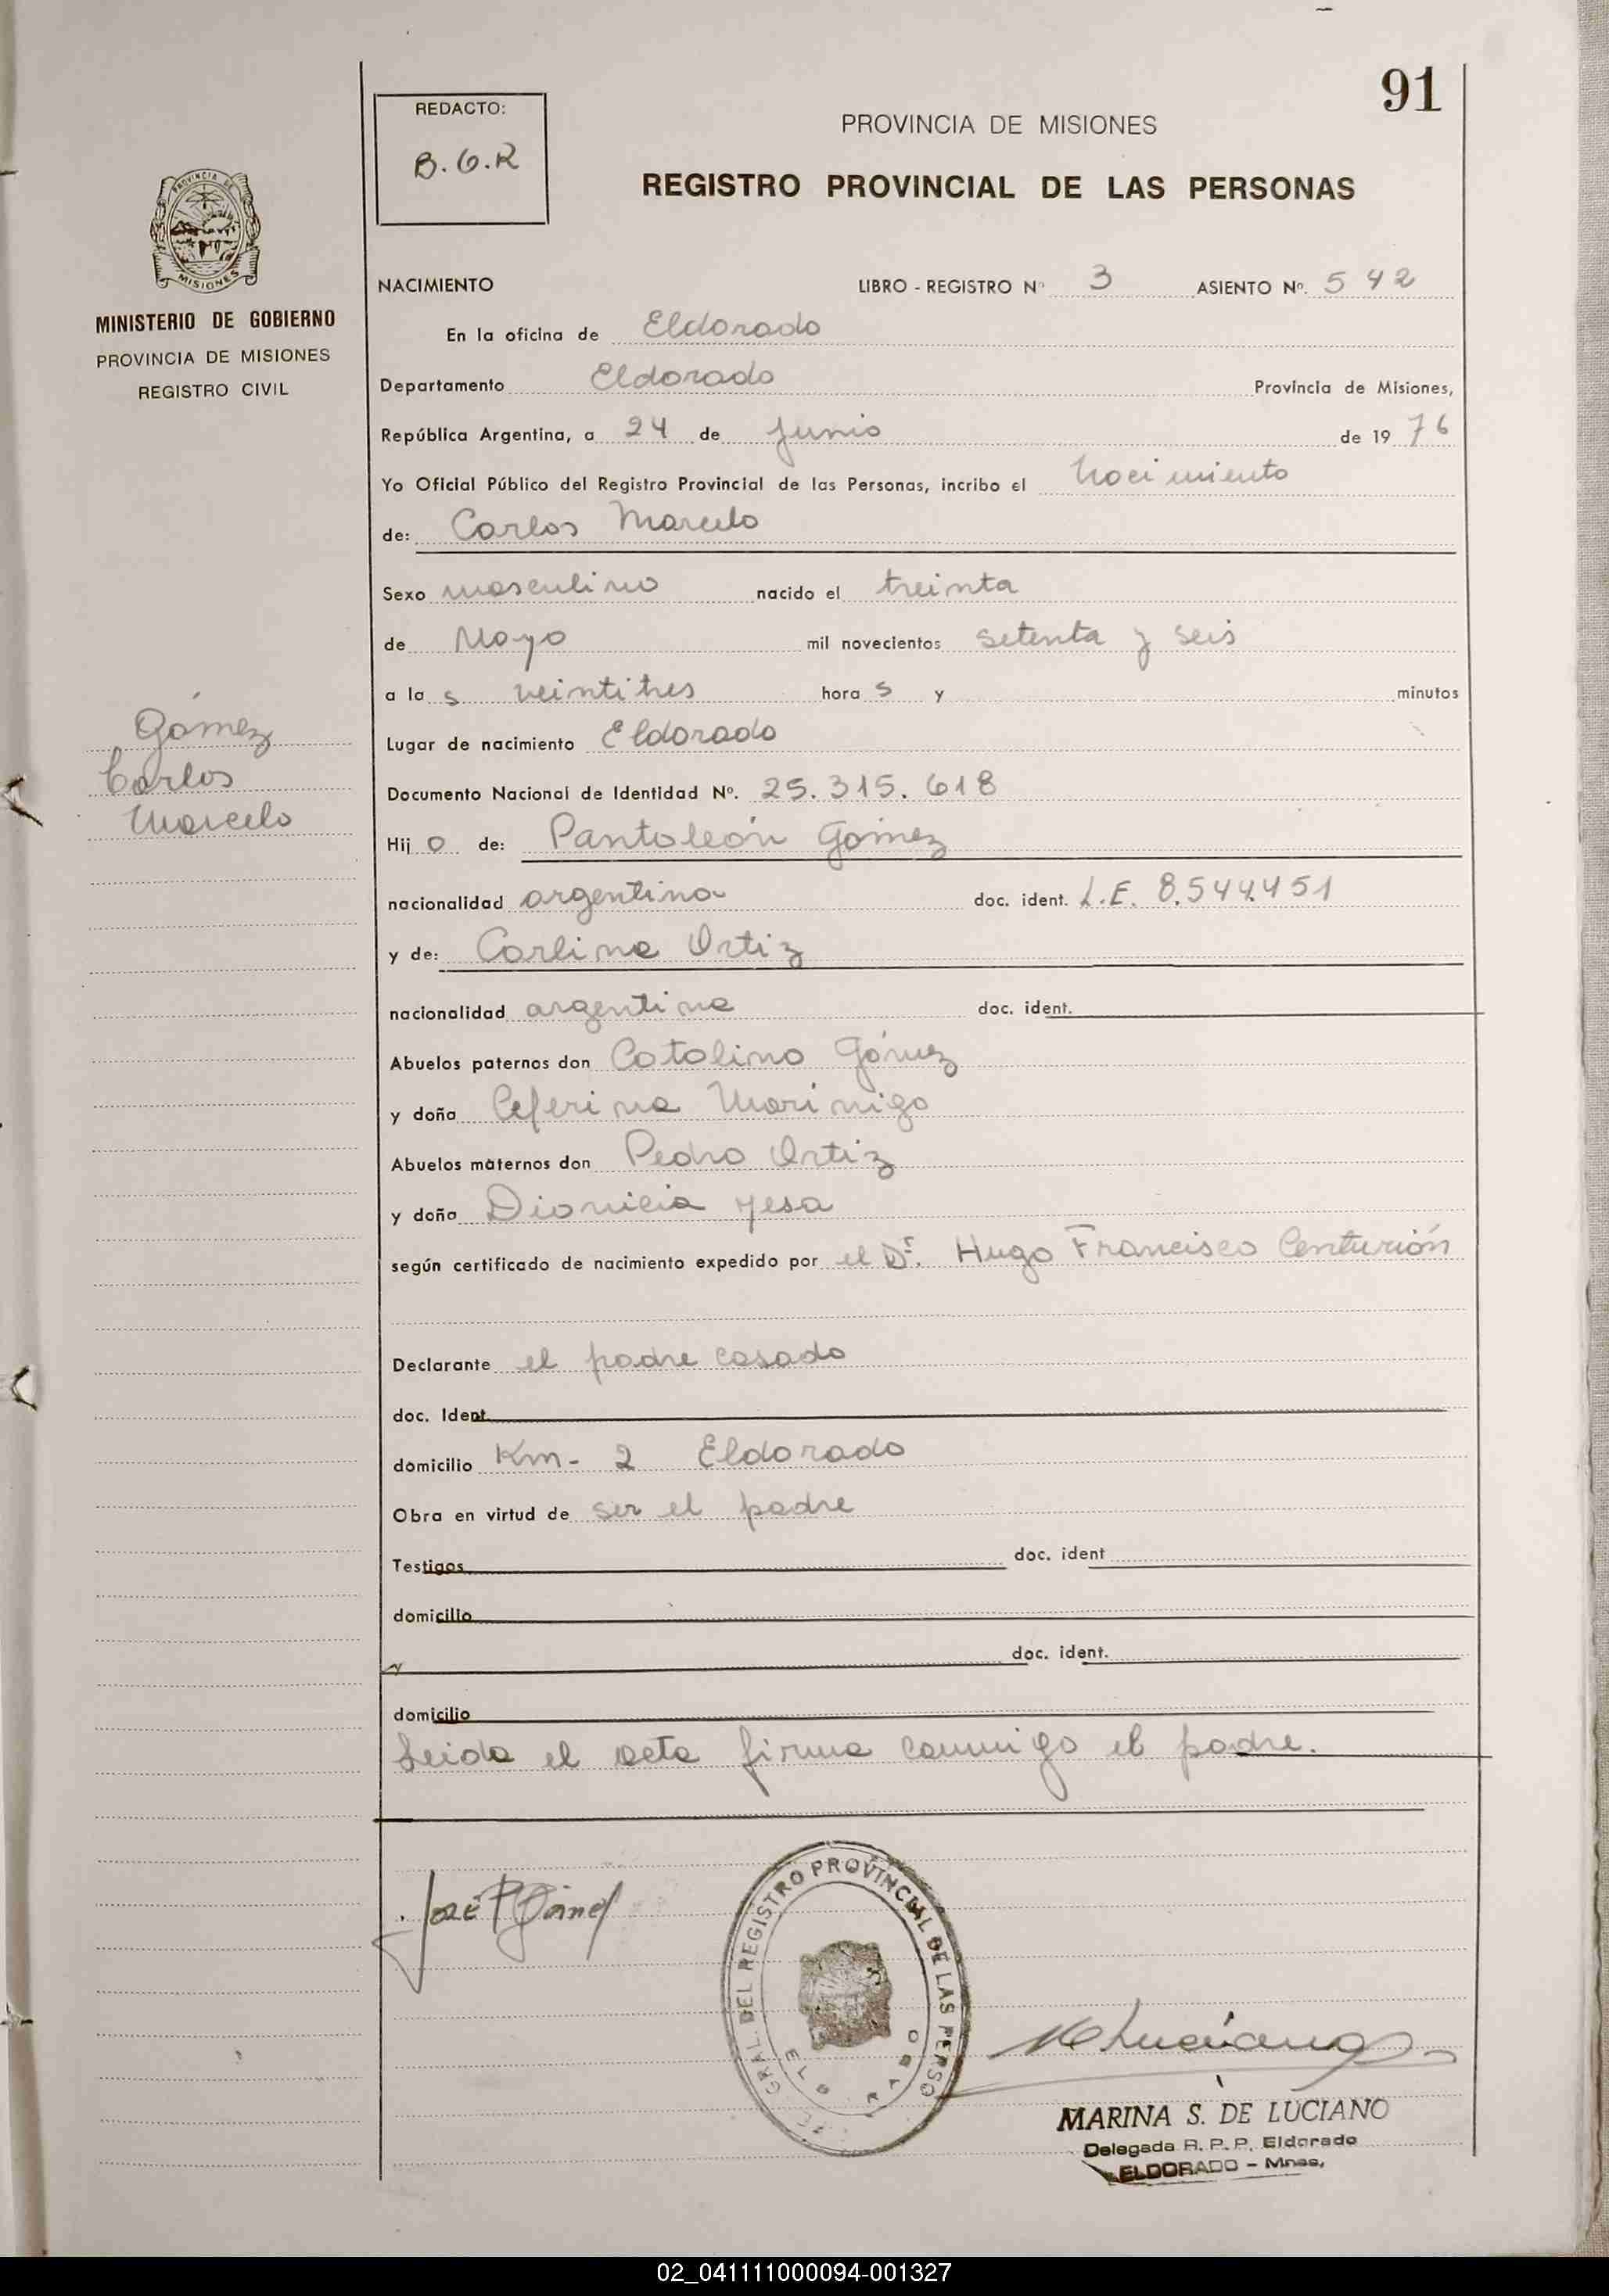 91
REDACTO:
B.G.R
PROVINCIA DE MISIONES
REGISTRO PROVINCIAL DE LAS PERSONAS
PROVINCIA DE
MISIONES
MINISTERIO DE GOBIERNO
PROVINCIA DE MISIONES
REGISTRO CIVIL
NACIMIENTO LIBRO - REGISTRO Nº 3 ASIENTO Nº. 542
En la oficina de Eldorado
Departamento Eldorado Provincia de Misiones,
República Argentina, a 24 de Junio de 1976
Yo Oficial Público del Registro Provincial de las Personas, incribo el Nacimiento
de: Carlos Marcelo
Sexo masculino nacido el treinta
de Mayo mil novecientos setenta y seis
a las veintitres horas y minutos
Gómez
Carlos
Marcelo
Lugar de nacimiento Eldorado
Documento Nacional de Identidad Nº. 25.315.618
Hijo de: Pantaleón Gómez
nacionalidad argentina doc. ident. L.E. 8.544.451
y de: Carlina Ortiz
nacionalidad argentina doc. ident.
Abuelos paternos don Catalino Gómez
y doña Ceferina Marinigo
Abuelos maternos don Pedro Ortiz
y doña Dionicia Yesa
según certificado de nacimiento expedido por el Dr. Hugo Francisco Centurión
Declarante el padre casado
doc. Ident.
domicilio Km- 2 Eldorado
Obra en virtud de ser el padre
Testigos doc. ident
domicilio
y doc. ident.
domicilio
Leida el acta firma conmigo el padre.
José P Gómez
GRAL. DEL REGISTRO PROVINCIAL DE LAS PERSO
MARINA S. DE LUCIANO
Delegada R. P. P. Eldorado
ELDORADO - Mnes,
02_041111000094-001327